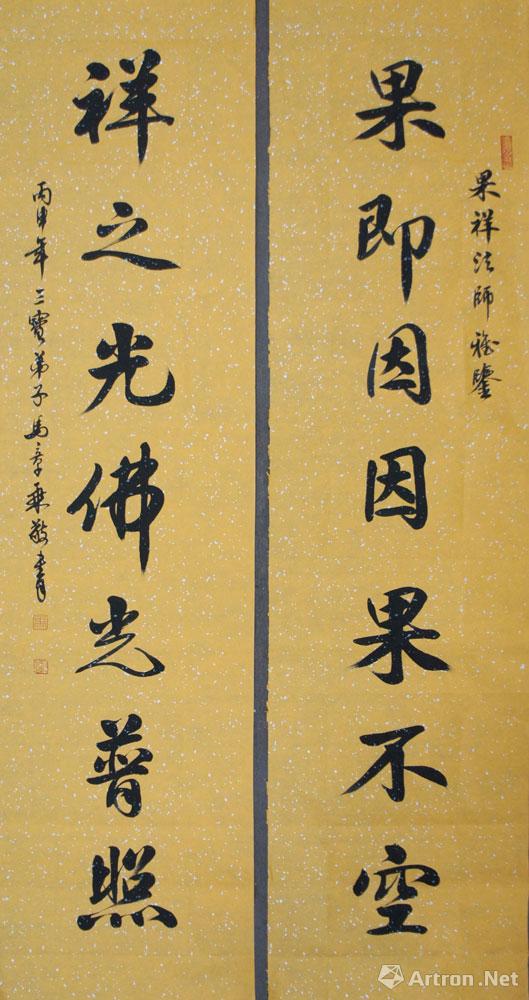 果祥法師雅鑒
果即因因果不空
祥之光佛光普照
丙申年三寶弟子馬章乘敬書
Artron.Net